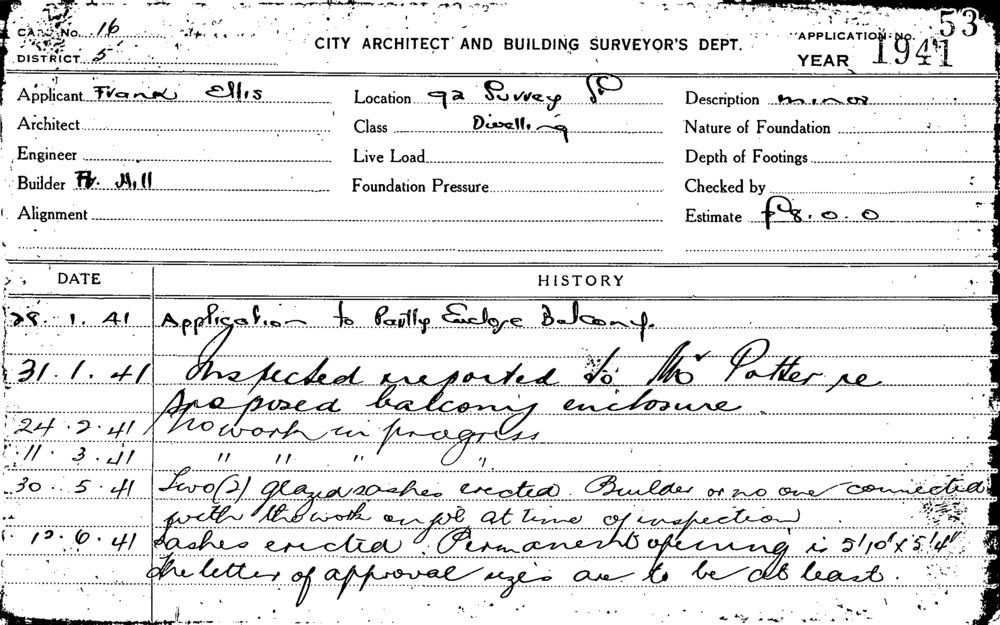 CARD No. 16
DISTRICT 5
CITY ARCHITECT AND BUILDING SURVEYOR'S DEPT.
APPLICATION No. 53
YEAR 1941
Applicant Frank Ellis
Location 92 Surrey St
Description minor
Architect
Class Dwelling
Nature of Foundation
Engineer
Live Load
Depth of Footings
Builder Hill
Foundation Pressure
Checked by
Alignment
Estimate £8.0.0
DATE HISTORY
28.1.41 Application to Partly Enclose Balcony.
31.1.41 Inspected & reported to Mr Potter re
proposed balcony enclosure.
24.2.41 No work in progress
11.3.41 " " " "
30.5.41 Two (2) glazed sashes erected. Builder or no one connected
with the work on job at time of inspection
6.41 Sashes erected. Permanent opening is 5'10" x 5'4"
the letter of approval sizes are to be at least.